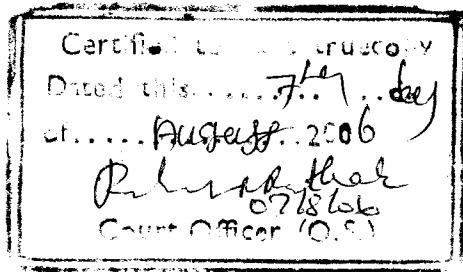 Certified to a true copy
Dated this.....7th...day
of.....August..2006
07/8/06
Court Officer (O.S.)